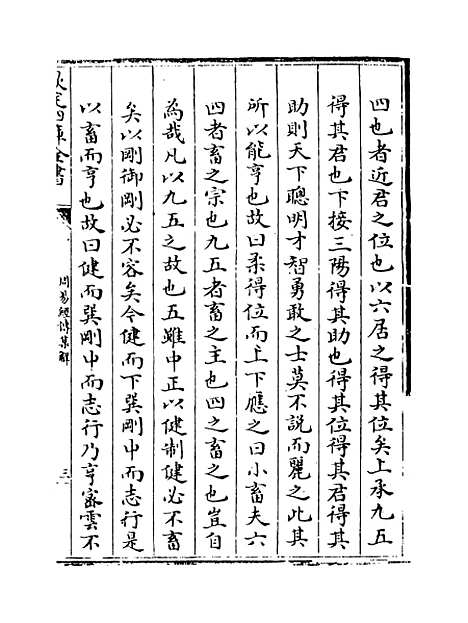 四也者近君之位也以六居之得其位矣上承九五
得其君也下接三陽得其助也得其位得其君得其
助則天下聰明才智勇敢之士莫不說而麗之此其
所以能亨也故曰柔得位而上下應之曰小畜夫六
四者畜之宗也九五者畜之主也四之畜之也豈自
為哉凡以九五之故也五雖中正以健制健必不畜
矣以剛御剛必不容矣今健而下巽剛中而志行是
以畜而亨也故曰健而巽剛中而志行乃亨密雲不
欽定四庫全書
周易經傳集解
三